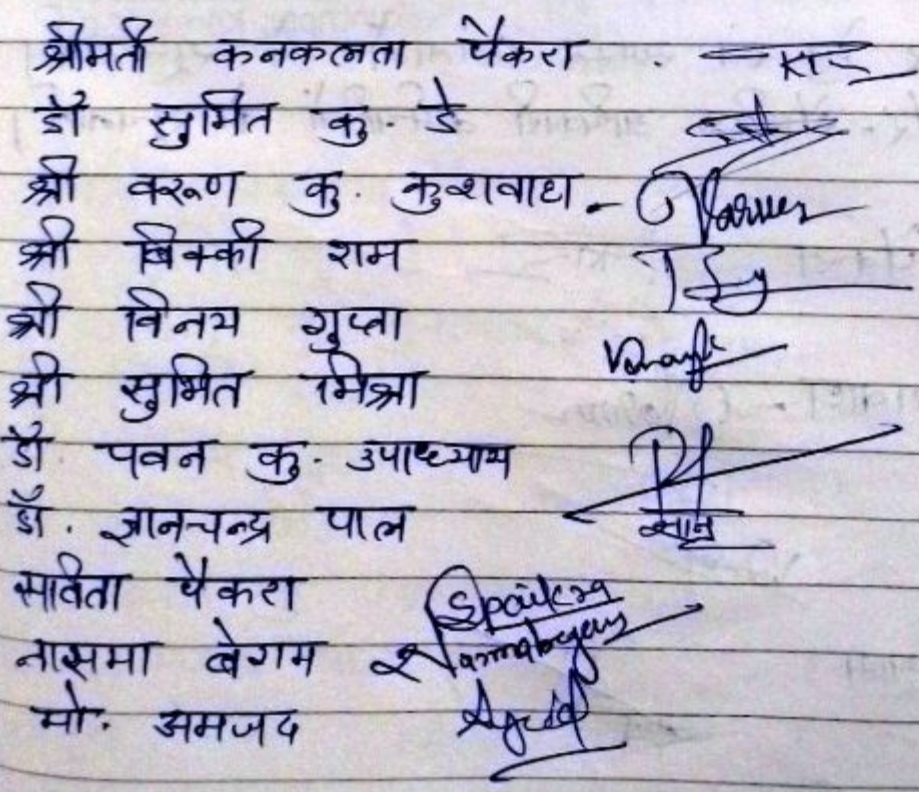 श्रीमती कनकलता पैकरा .
डॉ सुमित कु. डे
श्री वरूण कु. कुशवाहा - Varun
श्री विक्की राम
श्री विनय गुप्ता
श्री सुमित मिश्रा
डॉ. पवन कु. उपाध्याय
डॉ. ज्ञानचन्द्र पाल ज्ञान
सविता पैकरा Spaikra
नासमा बेगम
मो. अमजद